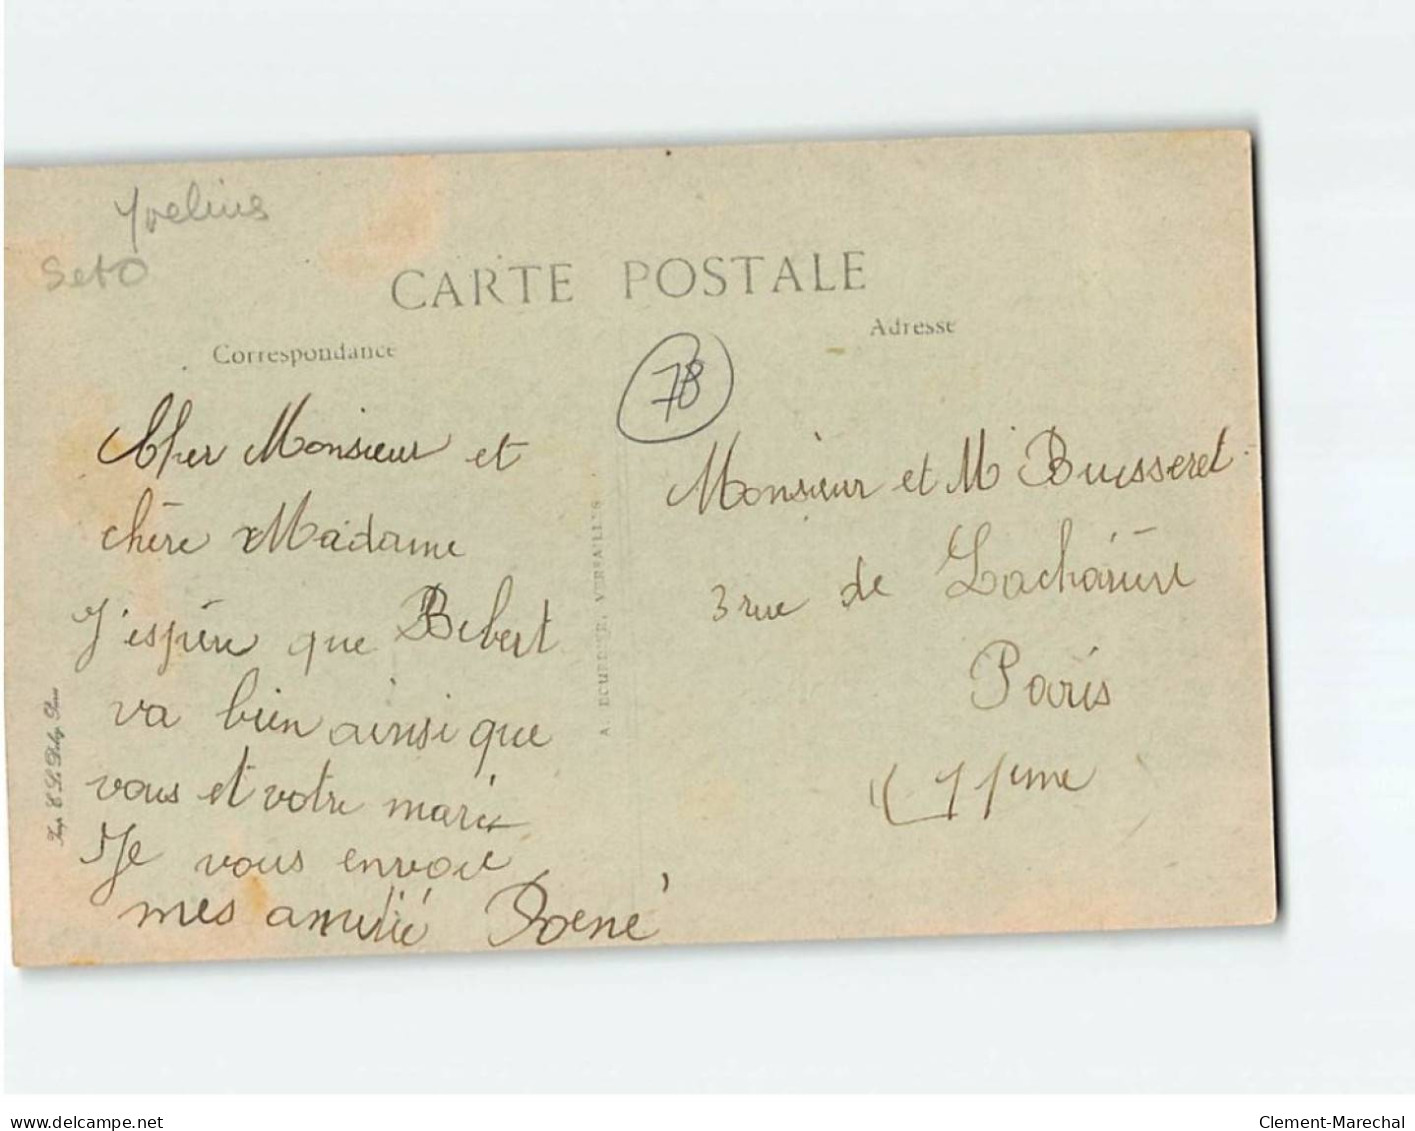 Yvelines
Set O
CARTE POSTALE
Correspondance
Adresse
78
Cher Monsieur et
chère Madame
J'espère que Bebert
va bien ainsi que
vous et votre mari
Je vous envoie
mes amitié René
Monsieur et M Buisseret
3 rue de Lacharière
Paris
(11ème
A. BOURDIER, VERSAILLES
Imp. E. Le Deley, Paris
www.delcampe.net
Clement-Marechal